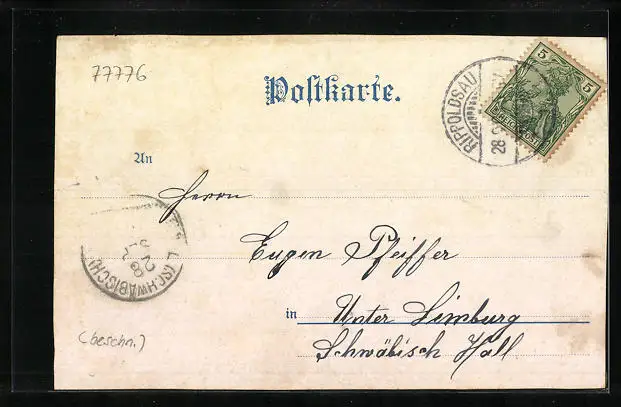 77776
Postkarte.
5 5
REICHSPOST
RIPPOLDSAU
28
An
Herrn
Eugen Pfeiffer
L (SCHWÄBISCH)
28
SEP
in Unter Limburg
Schwäbisch Hall
(beschn.)